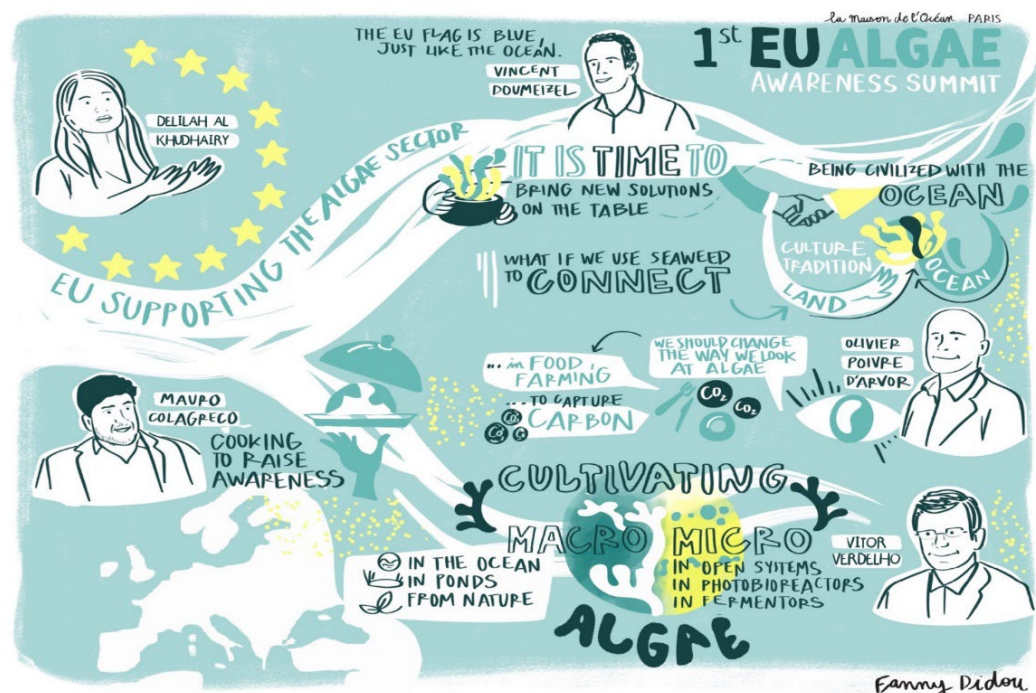 la maison de l'Océan PARIS
1st EU ALGAE
AWARENESS SUMMIT
THE EU FLAG IS BLUE,
JUST LIKE THE OCEAN.
VINCENT
DOUMEIZEL
DELILAH AL
KHUDHAIRY
EU SUPPORTING THE ALGAE SECTOR
IT IS TIME TO
BRING NEW SOLUTIONS
ON THE TABLE
BEING CIVILIZED WITH THE
OCEAN
CULTURE,
TRADITION
LAND
OCEAN
WHAT IF WE USE SEAWEED
TO CONNECT
WE SHOULD CHANGE
THE WAY WE LOOK
AT ALGAE
... in FOOD,
FARMING
... TO CAPTURE
CARBON
CO2
CO2
OLIVIER
POIVRE
D'ARVOR
MAURO
COLAGRECO
COOKING
TO RAISE
AWARENESS
CULTIVATING
MACRO
IN THE OCEAN
IN PONDS
FROM NATURE
MICRO
IN OPEN SYSTEMS
IN PHOTOBIOREACTORS
IN FERMENTORS
ALGAE
VITOR
VERDELHO
Fanny Didou